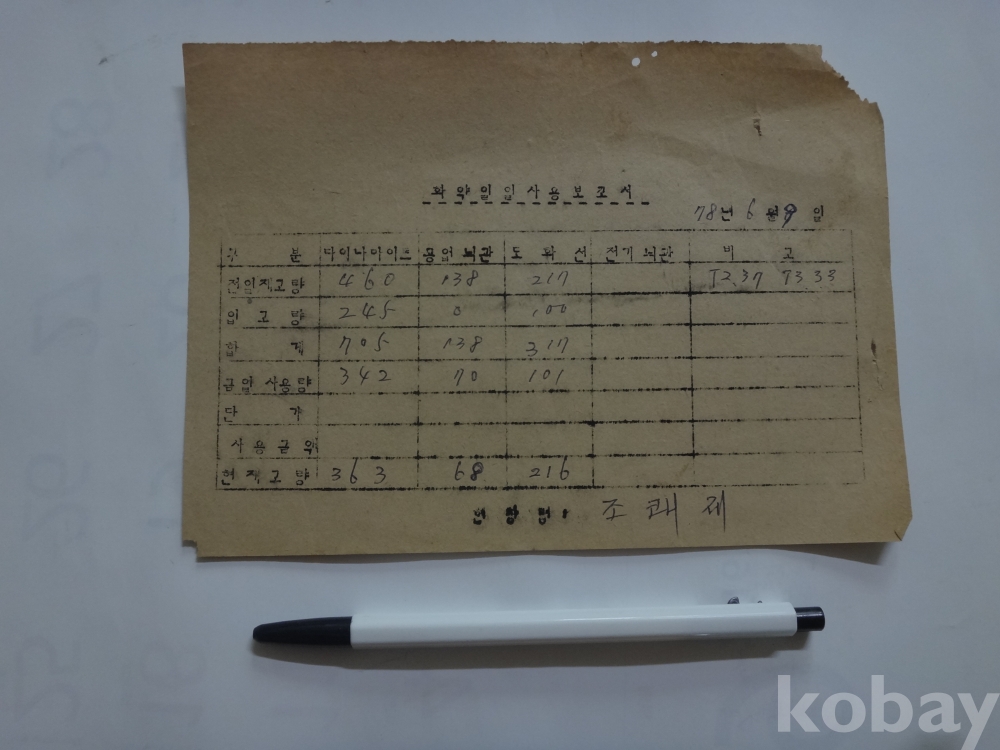 화약일일사용보고서
78년 6월 9일
구 분 다이나마이트 공업뇌관 도화선 전기뇌관 비 고
전일재고량 460 138 217 T2.37 T3.33
입 고 량 245 0 100
합 계 705 138 317
금일사용량 342 70 101
단 가
사용금액
현재고량 363 68 216
현장명: 조쾌제
kobay